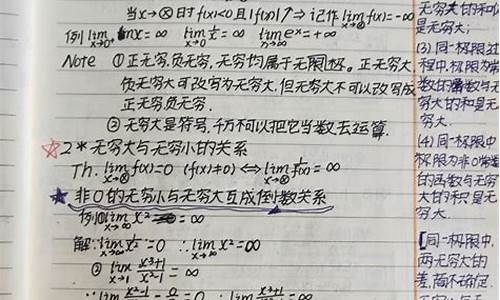 当x→⊗时f(x)<0且|f(x)|↗⇒记作lim f(x)=-∞
x→⊗
例 lim lnx=∞ lim 1/x=∞ lim eˣ=+∞
x→0⁺ x→0
Note ①正无穷,负无穷,无穷均属于无限极。正无穷大
负无穷大可改写为无穷大,但无穷大不可以改写成
正无穷负无穷.
②无穷大是符号,千万不可以把它当数去运算.
☆2*无穷大与无穷小的关系
Th. lim f(x)=0 (f(x)≠0) ⟺ lim 1/f(x)=∞
x→⊗ x→⊗
★非0的无穷小与无穷大互成倒数关系
例①lim x²=∞
x→∞
解:lim 1/x²=0 ∴lim x²=∞
x→∞ x→∞
② lim x³+1/x²-1=∞
x→∞
是无穷大.
(3)同一极限过
程中,极限为常
数的函数与无
穷大的和是无
穷大.
(4)同一极限中
极限为非0常数
的函数与无穷
大的积是无
穷大.
[同一极限中,
两无穷大的
差,商不确定.